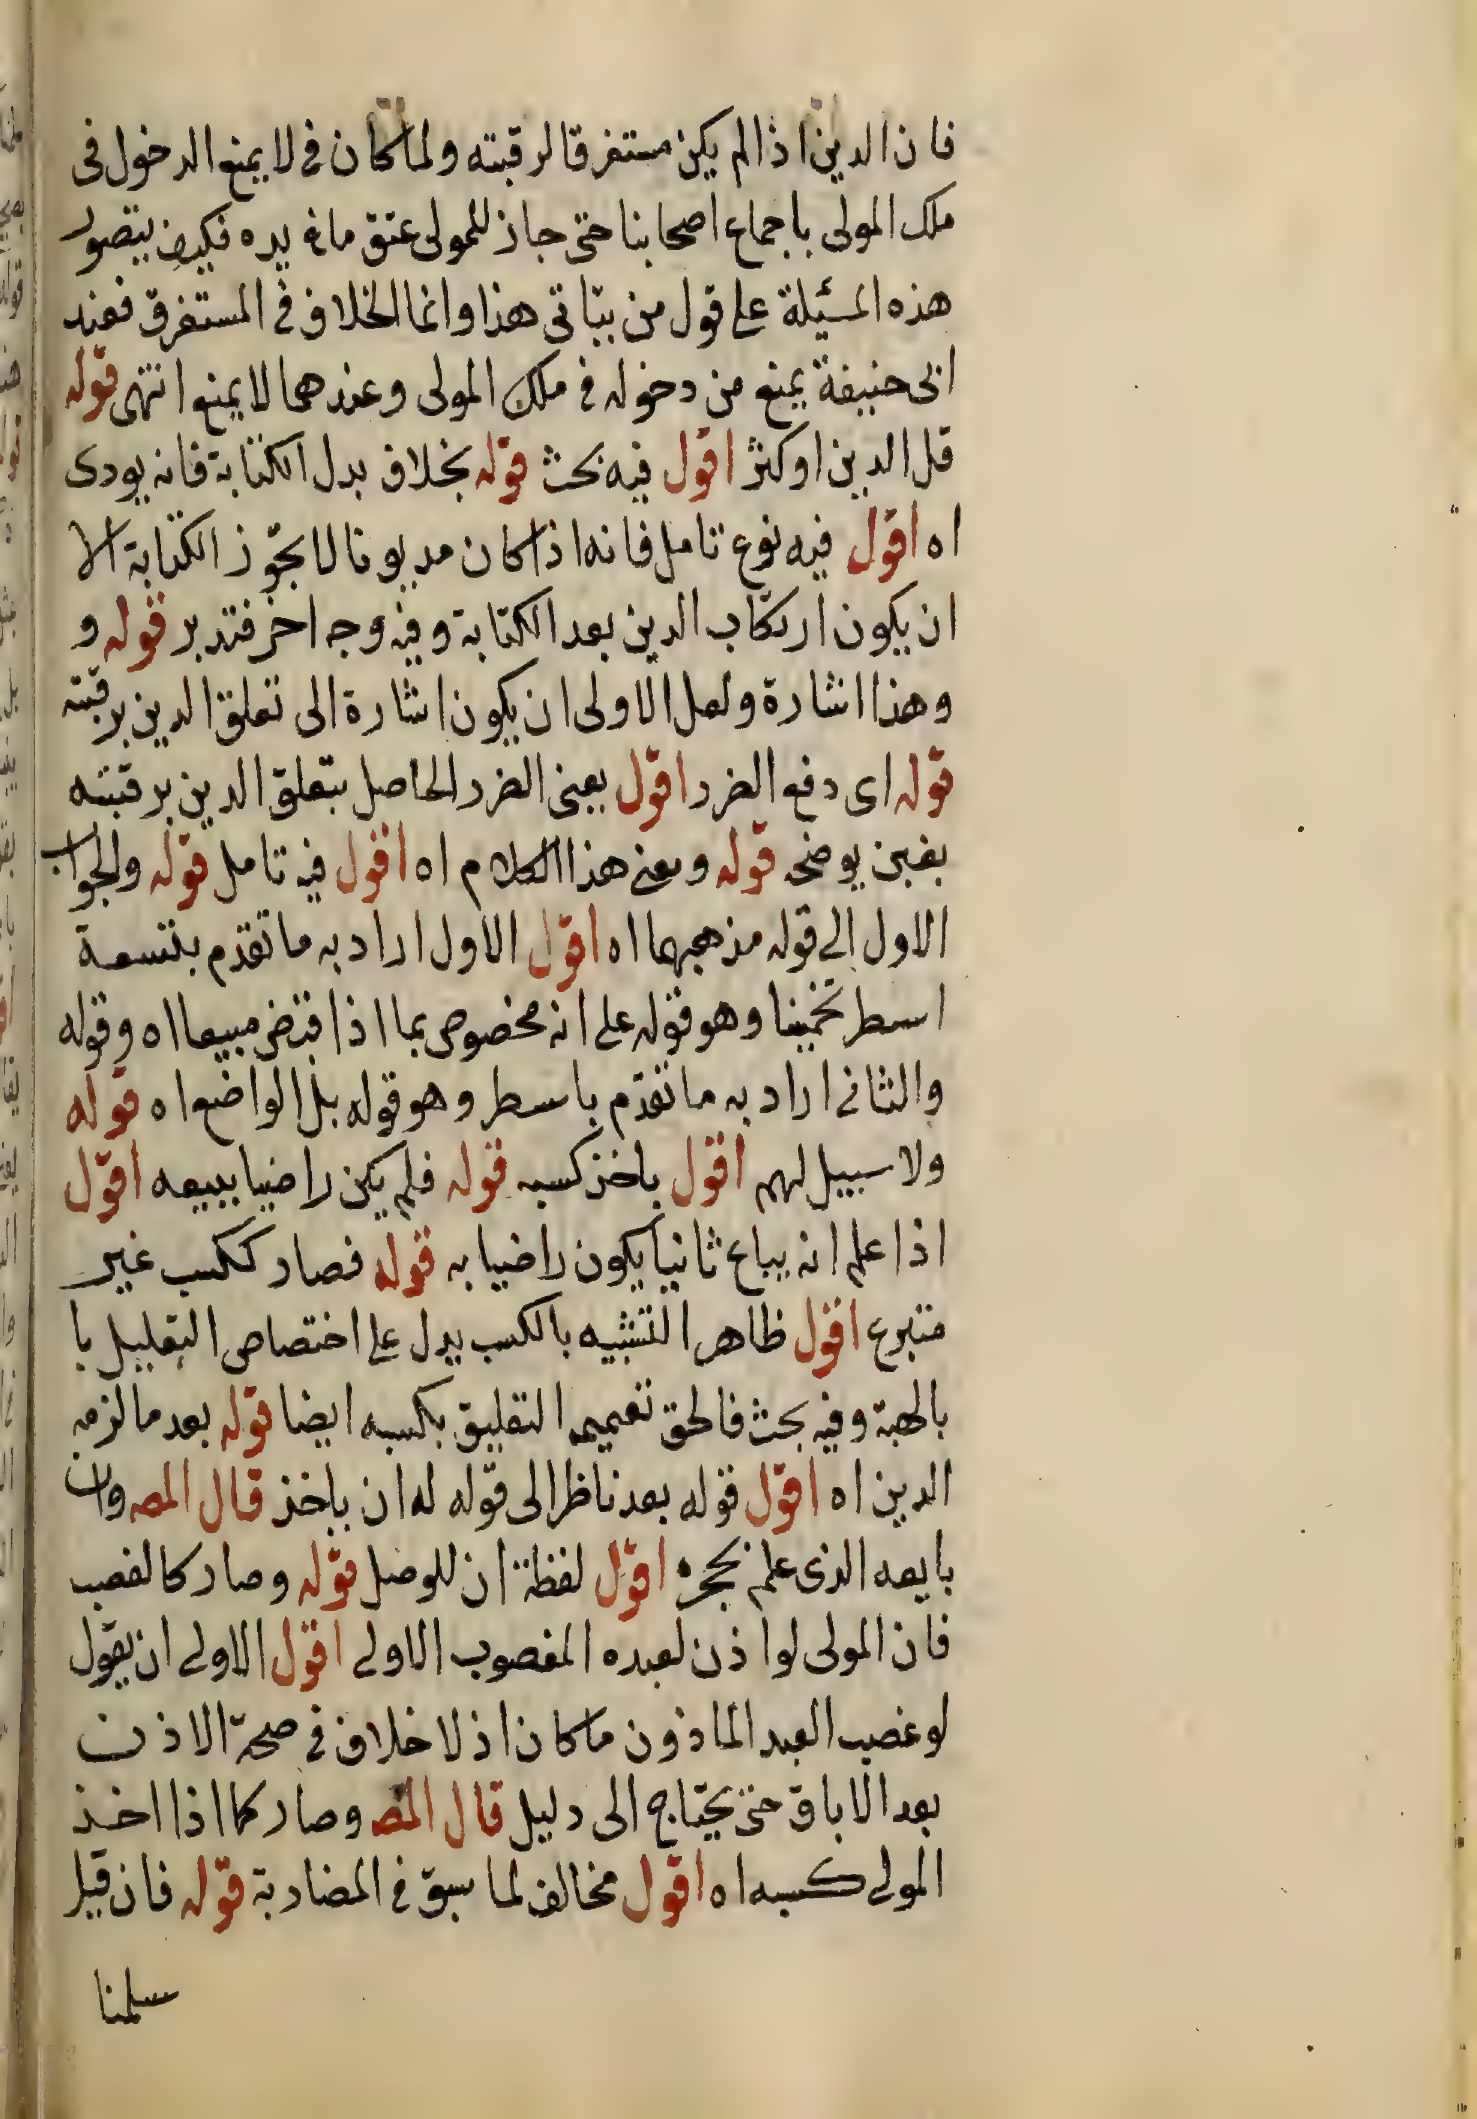 فان الدين اذا لم يكن مستغرقا لرقبته ولما كان في لا يمنع الدخول في
ملك المولى باجماع اصحابنا حتى جاز للمولى عتق ما في يده فكيف يتصور
هذه المسئلة على قول من يتاتى هذا وانما الخلاف في المستغرق فعند
ابى حنيفة يمنع من دخوله في ملك المولى وعندهما لا يمنع انتهى قوله
قل الدين او كثر اقول فيه بحث قوله بخلاف بدل الكتابة فانه يودى
اه اقول فيه نوع تامل فانه اذا كان مديونا لا يجوز الكتابة الا
ان يكون ارتكاب الدين بعد الكتابة وفيه وجه اخر فتدبر قوله و
وهذا اشارة ولعل الاولى ان يكون اشارة الى تعلق الدين برقبته
قوله اى دفع الضرر اقول يعنى الضرر الحاصل بتعلق الدين برقبته
بغبن يوضحه قوله ومعنى هذا الكلام اه اقول فيه تامل قوله والجواب
الاول الى قوله مذهبهما اه اقول الاول اراد به ما تقدم بتسعة
اسطر تخمينا وهو قوله على انه مخصوص بما اذا قبض مبيعا اه وقوله
والثاني اراد به ما تقدم باسطر وهو قوله بل الواضع اه قوله
ولا سبيل لهم اقول باخذ كسبه قوله فلم يكن راضيا ببيعه اقول
اذا علم انه يباع ثانيا يكون راضيا به قوله فصار ككسب غير
منتزع اقول ظاهر التشبيه بالكسب يدل على اختصاص التعليل با
بالهبة وفيه بحث فالحق تعميم التعليق بكسبه ايضا قوله بعد ما لزمه
الدين اه اقول قوله بعد ناظر الى قوله له ان ياخذ قال المصـ وان
بايعه الذى علم بحجره اقول لفظة ان للوصل قوله وصار كالغصب
فان المولى لو اذن لعبده المغصوب الاولى اقول الاولى ان يقول
لو غصب العبد الماذون ما كان اذ لا خلاف في صحة الاذن
بعد الاباق حتى يحتاج الى دليل قال المصـ وصار كما اذا اخذ
المولى كسبه اه اقول مخالف لما سبق في المضاربة قوله فان قيل
سلمنا